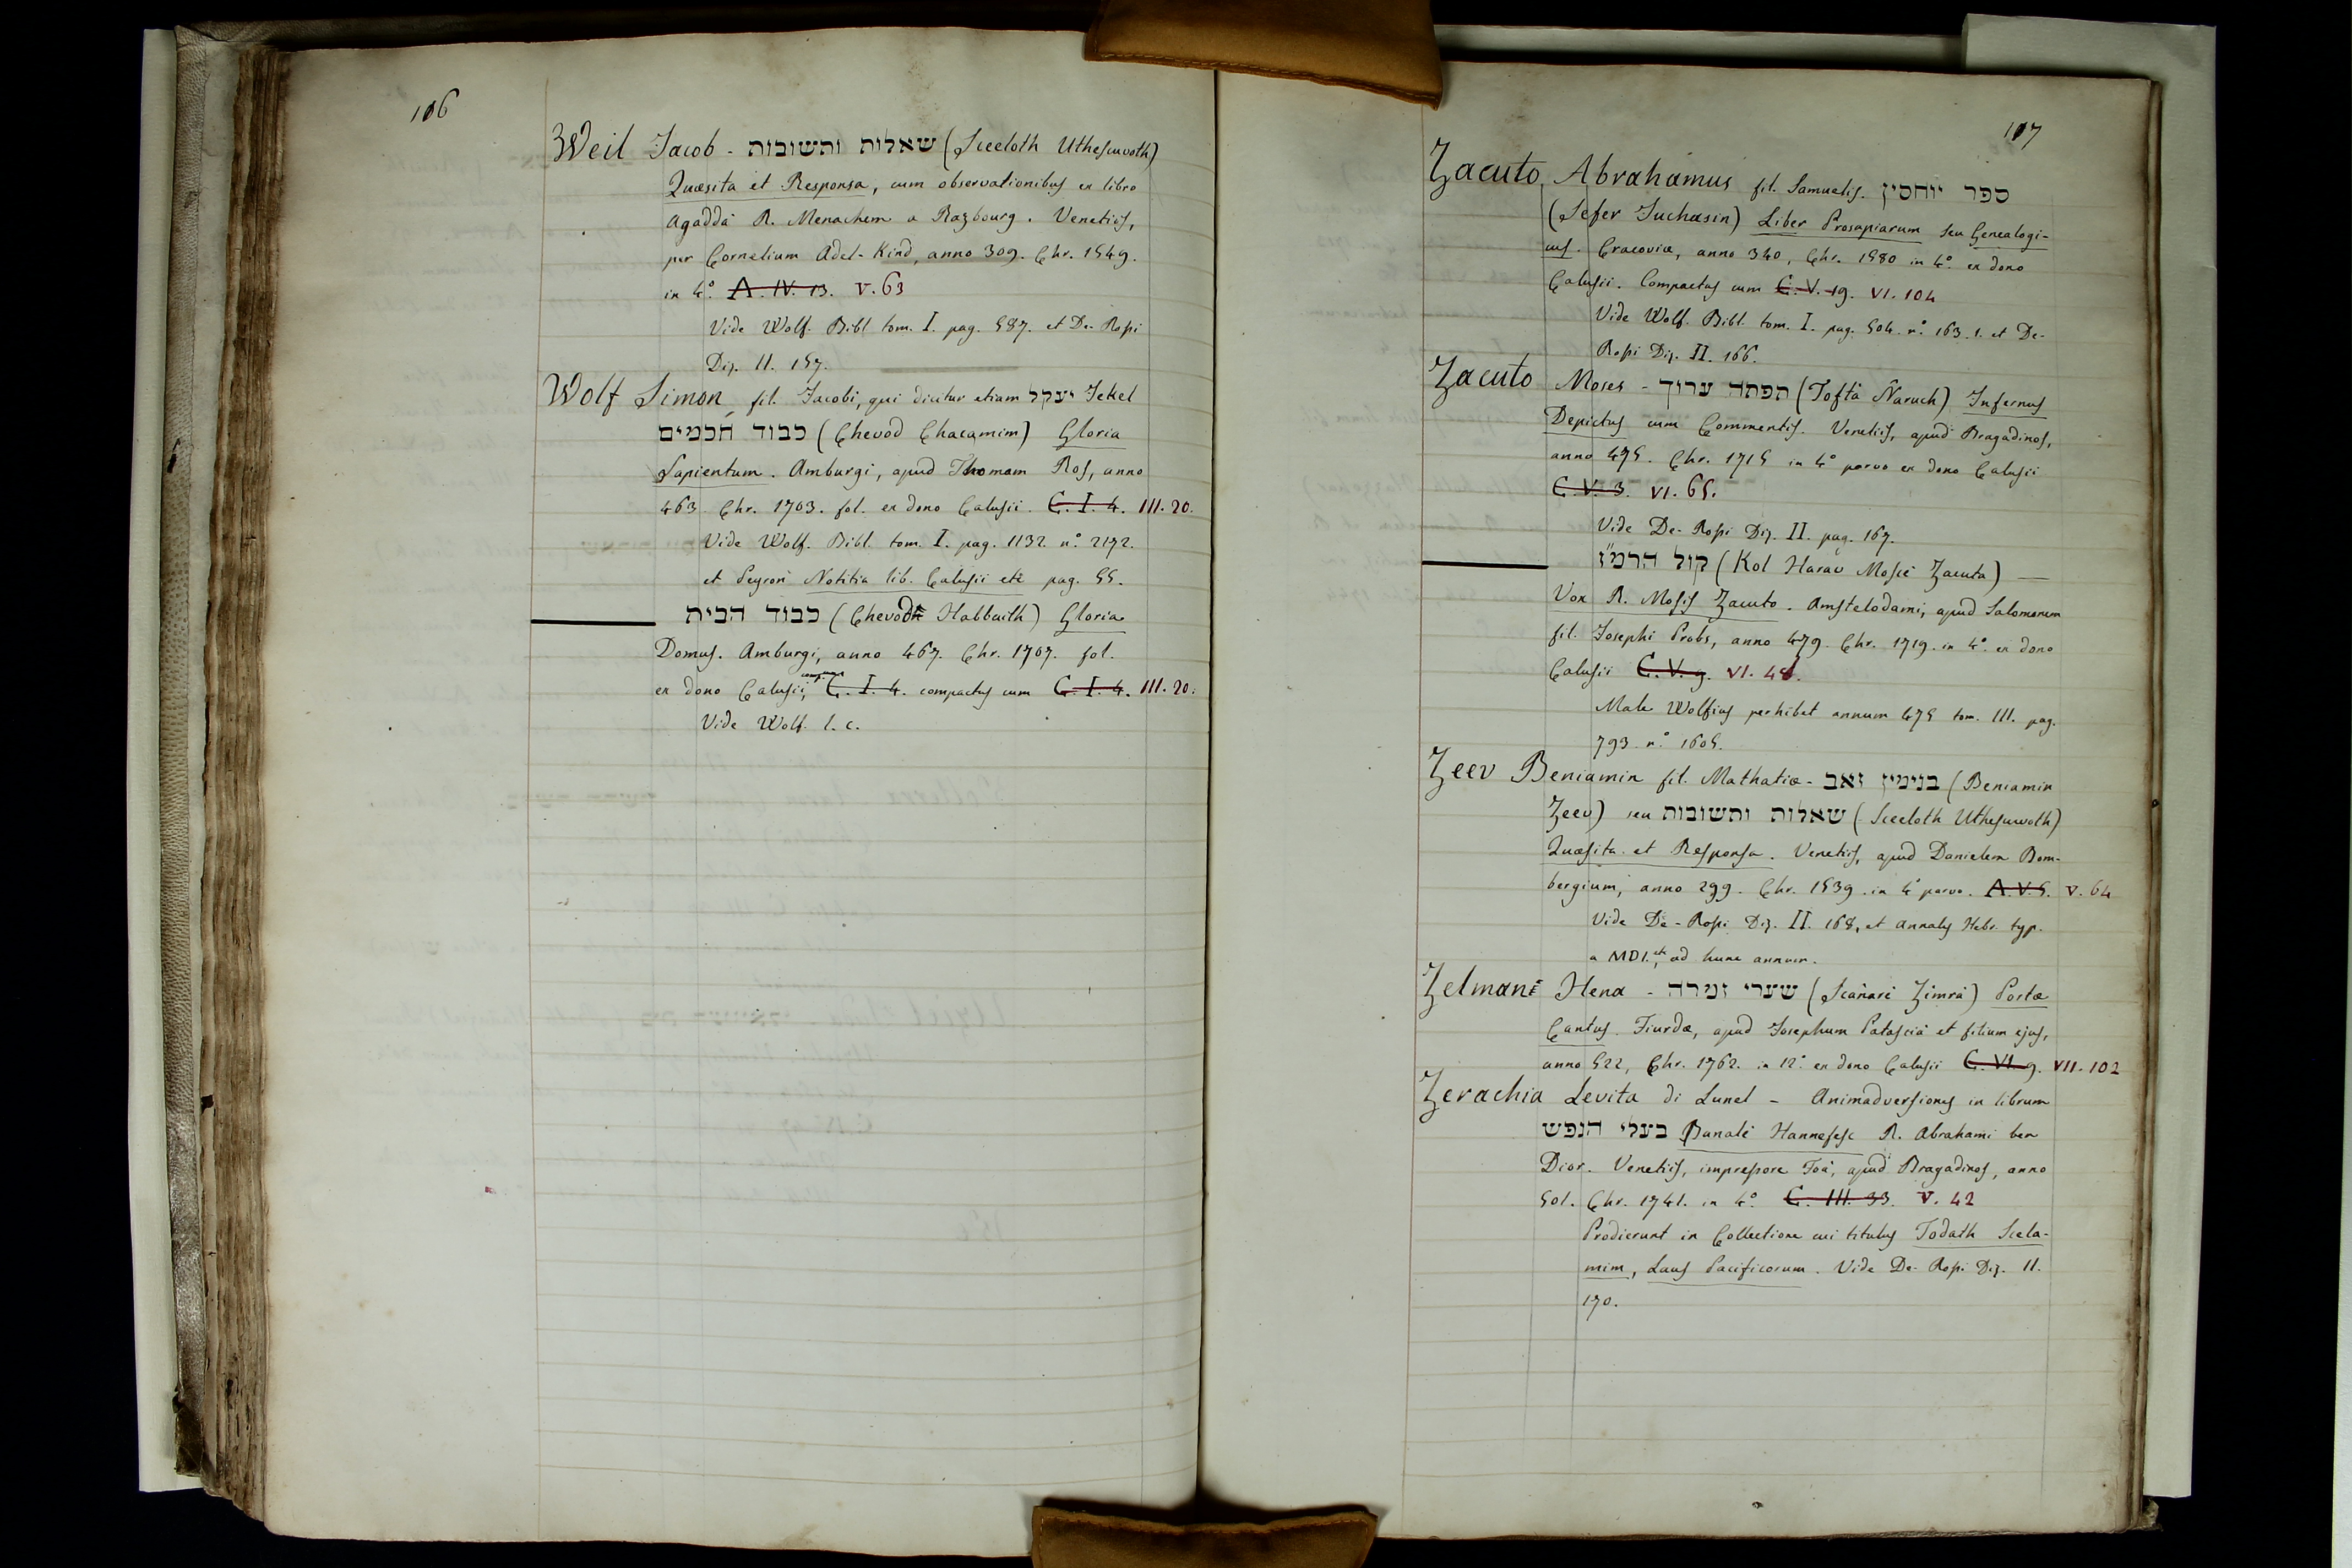 106
Weil Jacob - שאלות ותשובות (Sceeloth Utheſcuvoth)
Quæsita et Responsa, cum observationibus ex libro
Agaddà R. Menachem a Razbourg. Venetiis,
per Cornelium Adel-Kind, anno 309. Chr. 1549.
in 4.° A. IV. 13. V. 63
Vide Wolf. Bibl. tom. I. pag. 587. et De-Rossi
Diz. II. 157.
Wolf Simon, fil. Jacobi, qui dicitur etiam יעקל Jekel
כבוד חכמים (Chevod Chacamim) Gloria
Sapientum. Amburgi, apud Thomam Ros, anno
463. Chr. 1703. fol. ex dono Calusii. C. I. 4. III. 20.
Vide Wolf. Bibl. tom. I. pag. 1132. n.° 2172.
et Peyron Notitia lib. Calusii etc pag. 55.
כבוד הבית (Chevod Habbaith) Gloria
Domus. Amburgi, anno 467. Chr. 1707. fol.
ex dono Calusii, C. I. 4. compactus cum C. I. 4. III. 20.
Vide Wolf. l. c.
107
Zacuto, Abrahamus fil. Samuelis. ספר יוחסין
(Sefer Juchasin) Liber Prosapiarum seu Genealogi-
cus. Cracoviæ, anno 340, Chr. 1580 in 4.° ex dono
Calusii. Compactus cum C. V. 19. VI. 104
Vide Wolf. Bibl. tom. I. pag. 504. n.° 163. 1. et De-
Rossi Diz. II. 166.
Zacuto Moses - תפתה ערוך (Toftà Naruch) Infernus
Depictus cum Commentis. Venetiis, apud Bragadinos,
anno 475. Chr. 1715 in 4.° parvo ex dono Calusii
C. V. 3. VI. 65.
Vide De-Rossi Diz. II. pag. 167.
קול הרמ״ז (Kol Harav Moscè Zacuta) —
Vox R. Mosis Zacuto. Amstelodami, apud Salomonem
fil. Josephi Probs, anno 479. Chr. 1719. in 4.° ex dono
Calusii C. V. 9. VI. 48.
Male Wolfius perhibet annum 475 tom. III. pag.
793. n.° 1605.
Zeev Beniamin fil. Mathatiæ - בנימין זאב (Beniamin
Zeev) seu שאלות ותשובות (Sceeloth Uthescuvoth)
Quæsita et Responsa. Venetiis, apud Danielem Bom-
bergium, anno 299. Chr. 1539. in 4.° parvo. A. V. 5. V. 64
Vide De-Rossi Diz. II. 168, et Annales Hebr. typ.
a MDI. etc, ad hunc annum.
Zelmanè Hena - שערי זמרה (Scanarè Zimrà) Portæ
Cantus. Fiurdæ, apud Josephum Petascià et filium ejus,
anno 522, Chr. 1762. in 12.° ex dono Calusii C. VI. 9. VII. 102
Zerachia Levita di Lunel - Animadversiones in librum
בעלי הנפש Banalè Hannefesc R. Abrahami ben
Dior. Venetiis, impressore Foà, apud Bragadinos, anno
501. Chr. 1741. in 4.° C. III. 33. V. 42
Prodierunt in Collectione cui titulus Todath Scela-
mim, Laus Pacificorum. Vide De-Rossi Diz. II.
170.